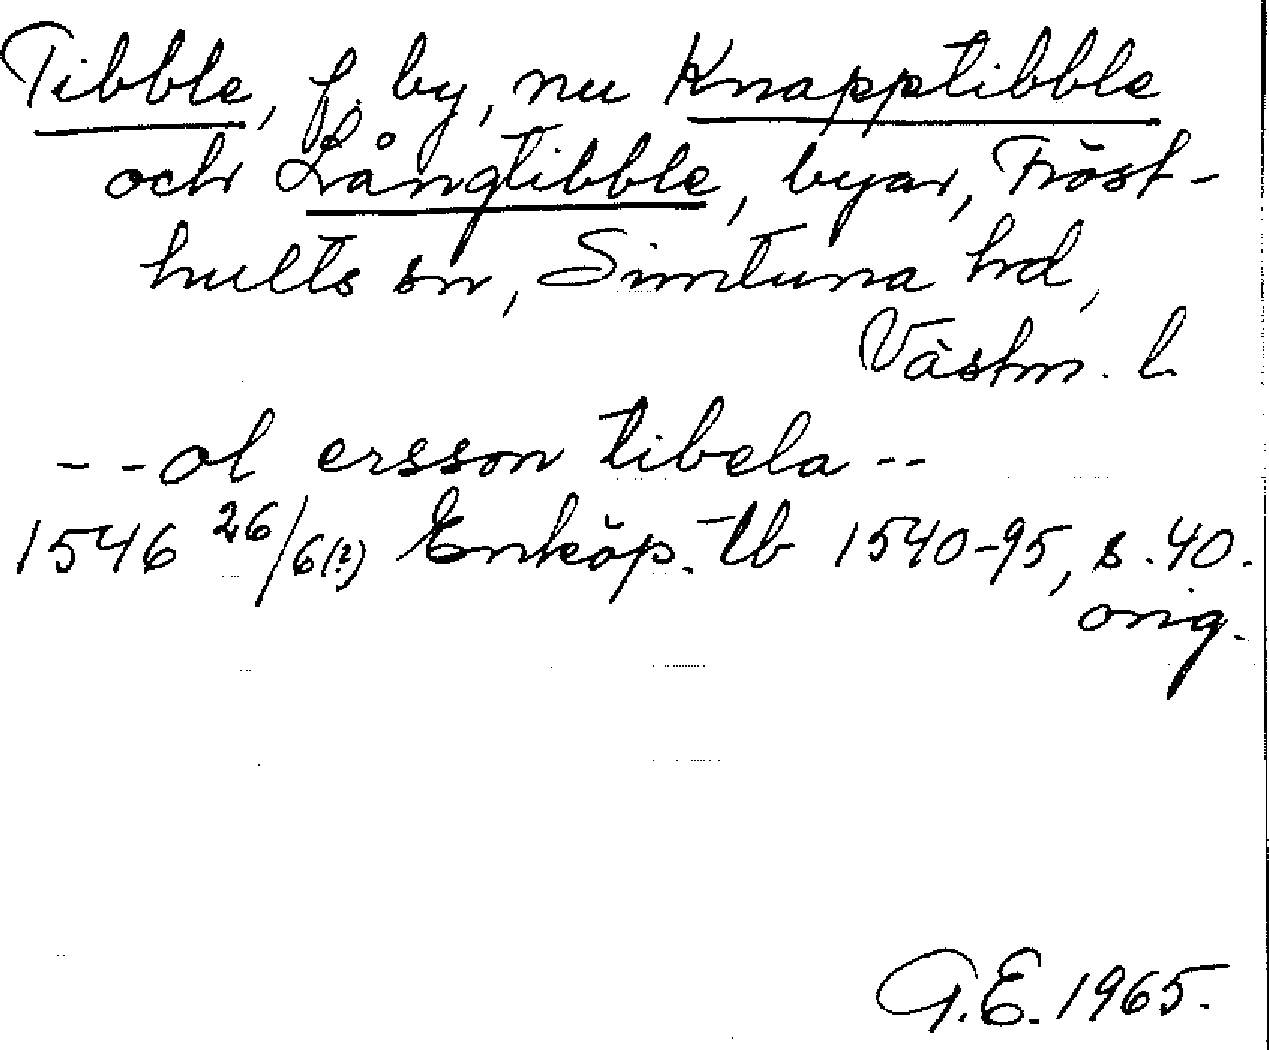 Tibble, f. by, nu Knapptibble
och Långtibble, byar, Fröst-
hults sn, Simtuna hd,
Västm. l.
-- ol ersson tibela --
1546 26/6(?) Enköp. tb 1540-95, s. 40.
orig.
G.E. 1965.